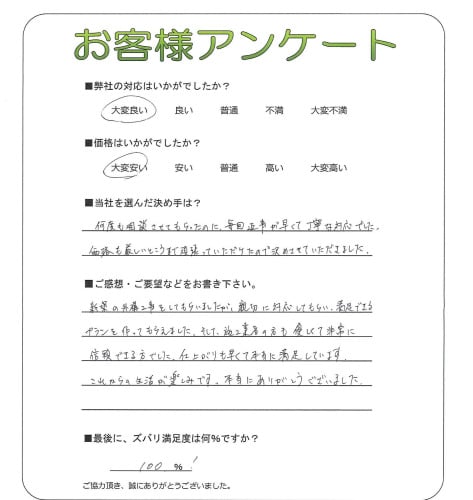 お客様アンケート
■弊社の対応はいかがでしたか？
大変良い 良い 普通 不満 大変不満
■価格はいかがでしたか？
大変安い 安い 普通 高い 大変高い
■当社を選んだ決め手は？
何度も相談させてもらったのに、毎回返事が早くて丁寧な対応でした。
価格も厳しいところまで頑張っていただけたので決めさせていただきました。
■ご感想・ご要望などをお書き下さい。
新築の外構工事をしてもらいましたが、親切に対応してもらい、満足できる
プランを作ってもらえました。そして、施工業者の方も優しくて非常に
信頼できる方でした。仕上がりも早くて本当に満足しています。
これからの生活が楽しみです。本当にありがとうございました。
■最後に、ズバリ満足度は何％ですか？
100 ％！
ご協力頂き、誠にありがとうございました。